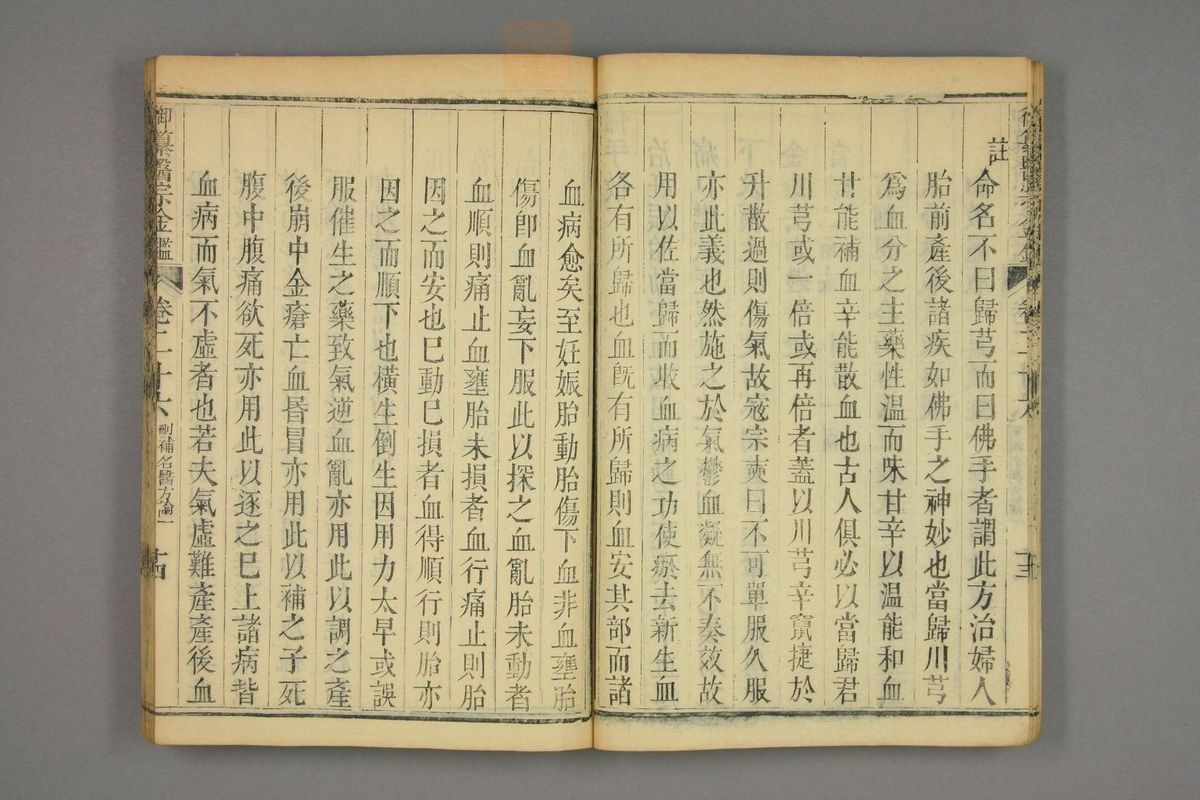 註
命名不曰歸芎而曰佛手者謂此方治婦人
胎前產後諸疾如佛手之神妙也當歸川芎
爲血分之主藥性溫而味甘辛以溫能和血
甘能補血辛能散血也古人俱必以當歸君
川芎或一倍或再倍者蓋以川芎辛竄捷於
升散過則傷氣故寇宗奭曰不可單服久服
亦此義也然施之於氣鬱血凝無不奏效故
用以佐當歸而收血病之功使瘀去新生血
各有所歸也血旣有所歸則血安其部而諸
血病愈矣至妊娠胎動胎傷下血非血壅胎
傷卽血亂妄下服此以探之血亂胎未動者
血順則痛止血壅胎未損者血行痛止則胎
因之而安也已動已損者血得順行則胎亦
因之而順下也橫生倒生因用力太早或誤
服催生之藥致氣逆血亂亦用此以調之產
後崩中金瘡亡血昏冒亦用此以補之子死
腹中腹痛欲死亦用此以逐之已上諸病皆
血病而氣不虛者也若夫氣虛難產產後血
御纂醫宗金鑑
卷二十六
刪補名醫方論一
十四